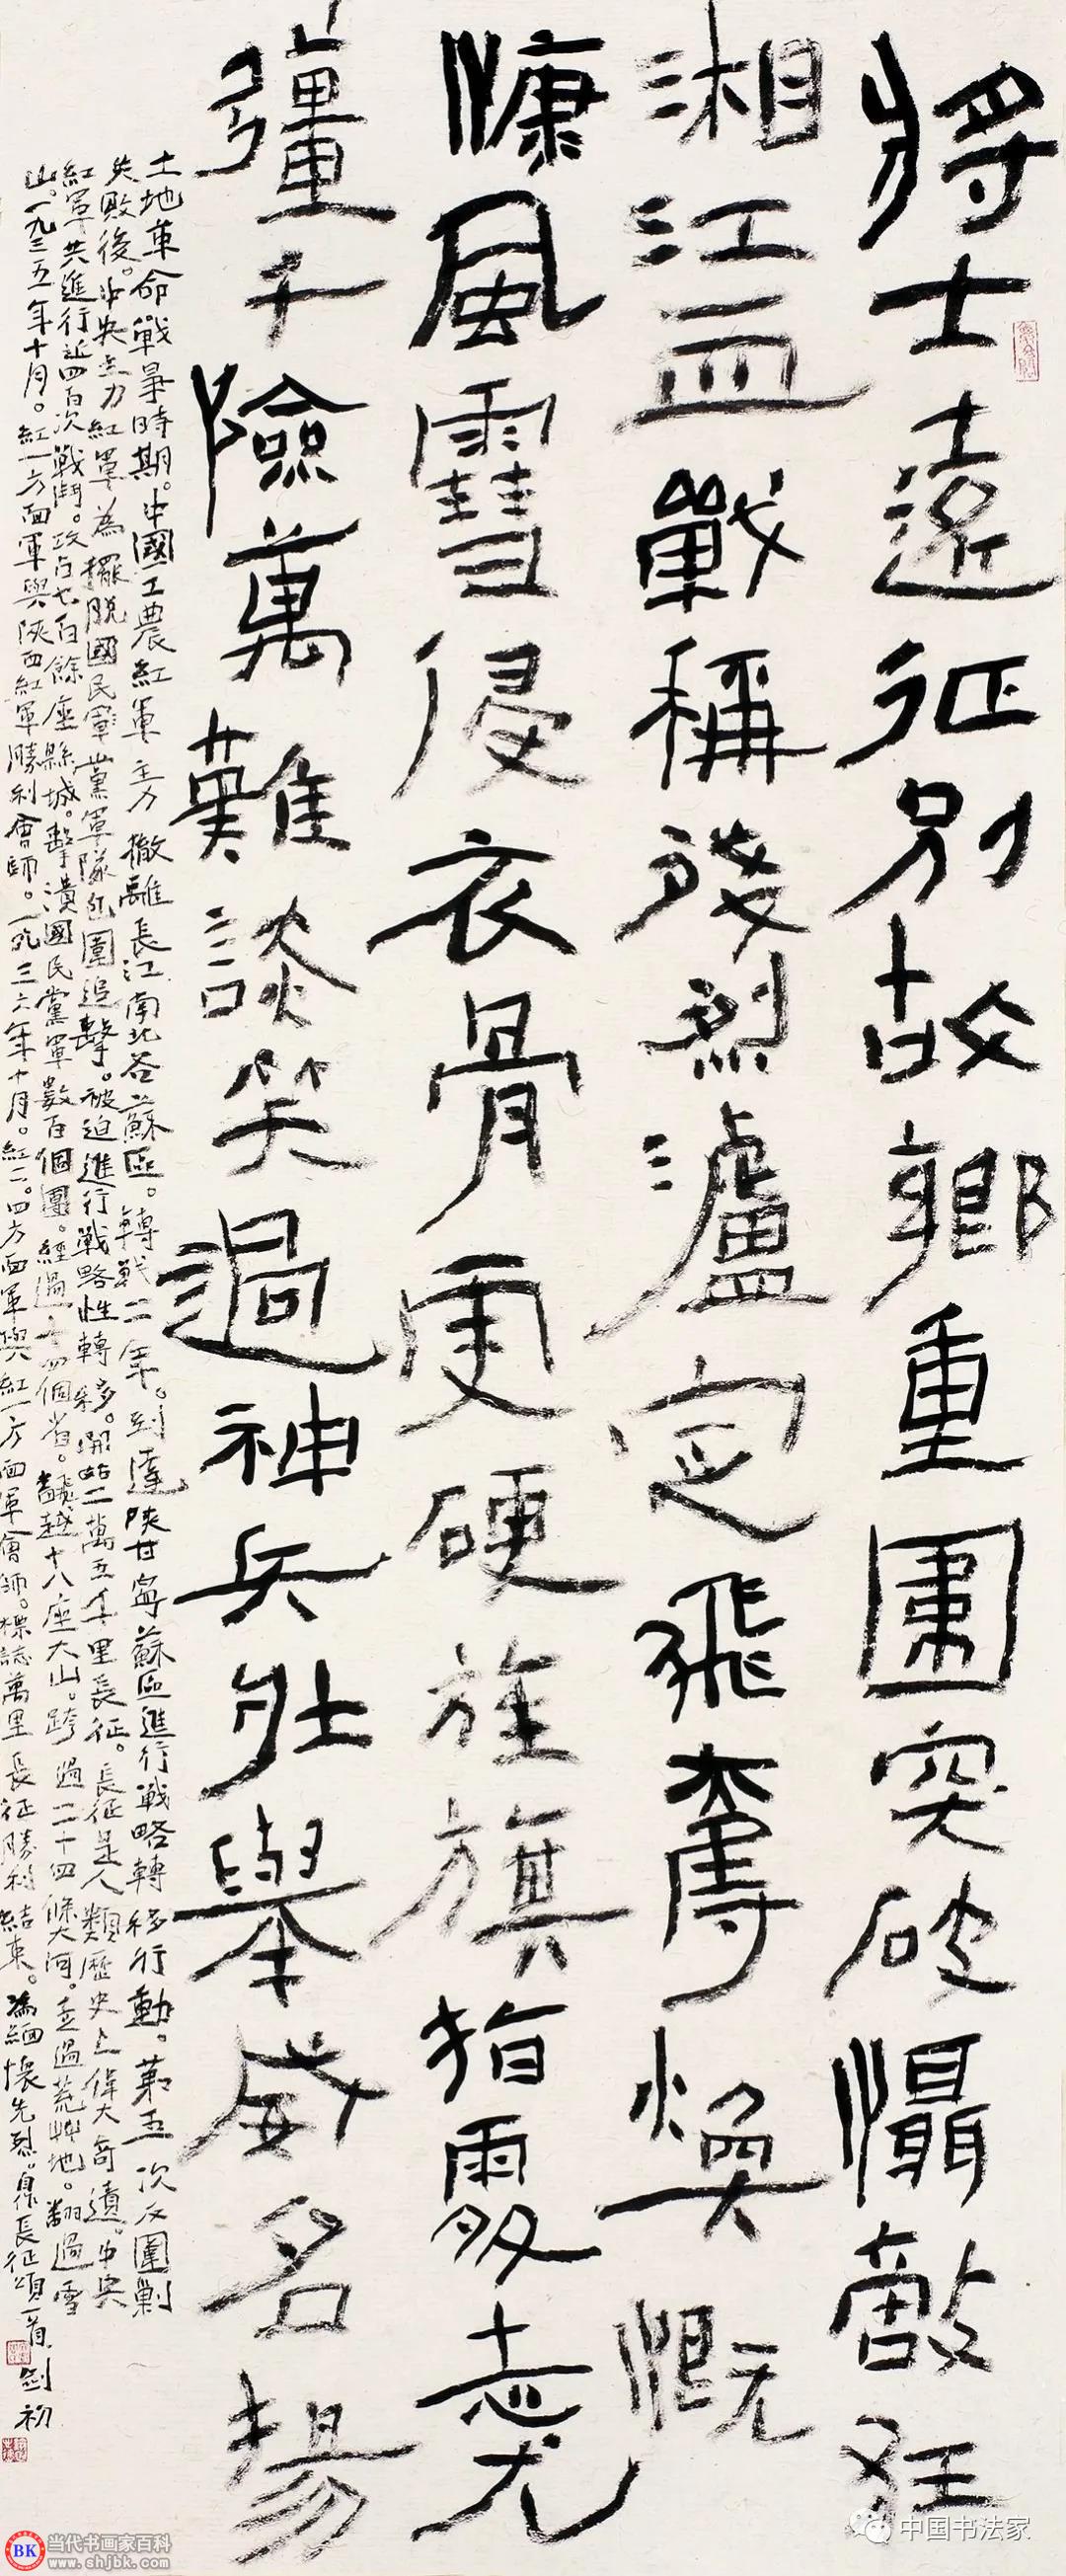 將士遠征別故鄉重圍突破懾敵狂
湘江血戰稱殘烈瀘定飛奪煥慨
慷風雪侵衣骨更硬旌旗指處志尤
彊千險萬難談笑過神兵壯舉威名揚
土地革命戰爭時期。中國工農紅軍主力撤離長江南北各蘇區。轉戰二年。到達陝甘寧蘇區進行戰略轉移行動。第五次反圍剿
失敗後。中央主力紅軍為擺脫國民黨軍隊包圍追擊。被迫進行戰略性轉移。開始二萬五千里長征。長征是人類歷史上偉大奇蹟。中央
紅軍共進行近四百次戰鬥。攻占七百餘座縣城。擊潰國民黨軍數百個團。經過十四個省。翻越十八座大山。跨過二十四條大河。走過荒艸地。翻過雪
山。一九三五年十月。紅一方面軍與陝西紅軍勝利會師。一九三六年十月。紅二。四方面軍與紅一方面軍會師。標誌萬里長征勝利結束。為緬懷先烈。長征頌一首 劍初
中国书法家
BK 当代书画家百科
www.shjbk.com